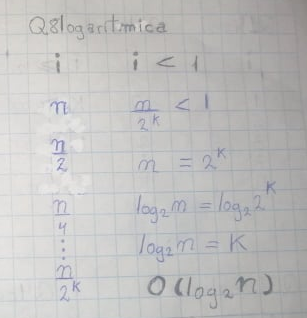 Q8logaritmica
i i < 1
n n/2^k < 1
n/2 n = 2^k
n/4 log₂n = log₂2^k
⋮ log₂n = k
n/2^k O(log₂n)